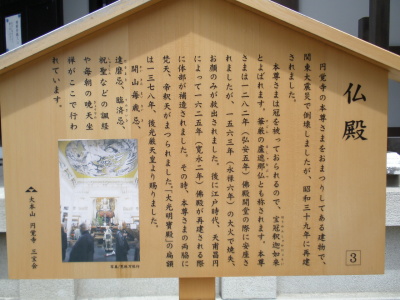 仏殿
円覚寺の本尊さまをおまつりしてある建物で、
関東大震災で倒壊しましたが、昭和三十九年に再建
されました。
本尊さまは冠を被っておられるので、宝冠釈迦如来
とよばれます。華厳の盧遮那仏とも称されます。本尊
さまは一二八二（弘安五年）仏殿開堂の際に安座さ
れましたが、一五六三（永禄六年）の大火で焼失、
お顔のみが救出されました。後に江戸時代、天甫昌円
によって一六二五（寛永二年）仏殿が再建される際
に体部が補造されました。その時、本尊さまの両脇に
梵天、帝釈天がまつられました「大光明寶殿」の扁額
は一三七八年、後光厳天皇より賜りました。
開山毎歳忌、
達磨忌、臨済忌、
祝聖などの諷経
や毎朝の暁天坐
禅がここで行わ
れています。
大本山 円覚寺 三宝会
3